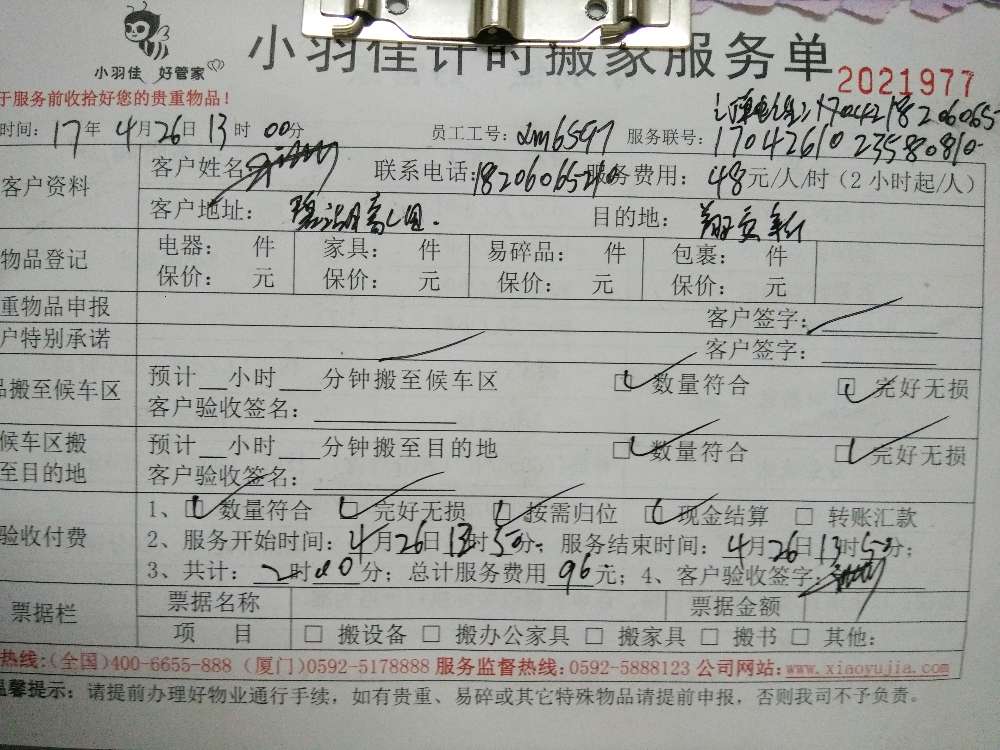 小羽佳 好管家
小羽佳计时搬家服务单
2021977
于服务前收拾好您的贵重物品！
时间：17年4月26日13时00分 员工工号：xm6597 服务联号：17042610235880810
客户资料 客户姓名 联系电话：18206065210 服务费用：48元/人/时（2小时起/人）
客户地址： 目的地：
物品登记 电器： 件 家具： 件 易碎品： 件 包裹： 件
保价： 元 保价： 元 保价： 元 保价： 元
重物品申报 客户签字：
户特别承诺 客户签字：
品搬至候车区 预计__小时___分钟搬至候车区 □数量符合 □完好无损
客户验收签名：
候车区搬 预计__小时___分钟搬至目的地 □数量符合 □完好无损
至目的地 客户验收签名：
验收付费 1、□数量符合 □完好无损 □按需归位 □现金结算 □ 转账汇款
2、服务开始时间：4月26日13时50分；服务结束时间：4月26日13时50分；
3、共计：2时00分；总计服务费用96元；4、客户验收签字：
票据栏 票据名称 票据金额
项 目 □ 搬设备 □ 搬办公家具 □ 搬家具 □ 搬书 □ 其他：
热线：（全国）400-6655-888（厦门）0592-5178888 服务监督热线：0592-5888123 公司网站：www.xiaoyujia.com
温馨提示：请提前办理好物业通行手续，如有贵重、易碎或其它特殊物品请提前申报，否则我司不予负责。